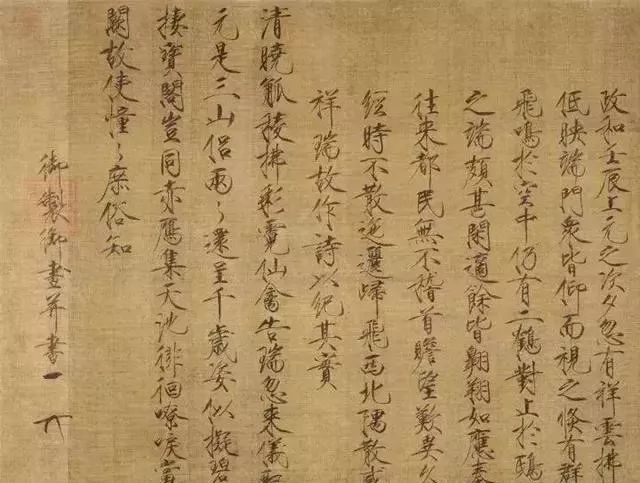 政和壬辰上元之次夕忽有祥雲拂
低映端門衆皆仰而視之倏有群
飛鳴於空中仍有二鶴對止於鴟
之端頗甚閑適餘皆翱翔如應奏
往來都民無不稽首瞻望歎異久
經時不散迤邐歸飛西北隅散
祥瑞故作詩以紀其實
清曉觚稜拂彩霓仙禽告瑞忽來儀
元是三山侶兩〻還呈千歲姿似擬碧
捿寶閣豈同赤鴈集天池徘徊嘹唳當
闕故使憧〻庶俗知
御製御畫并書